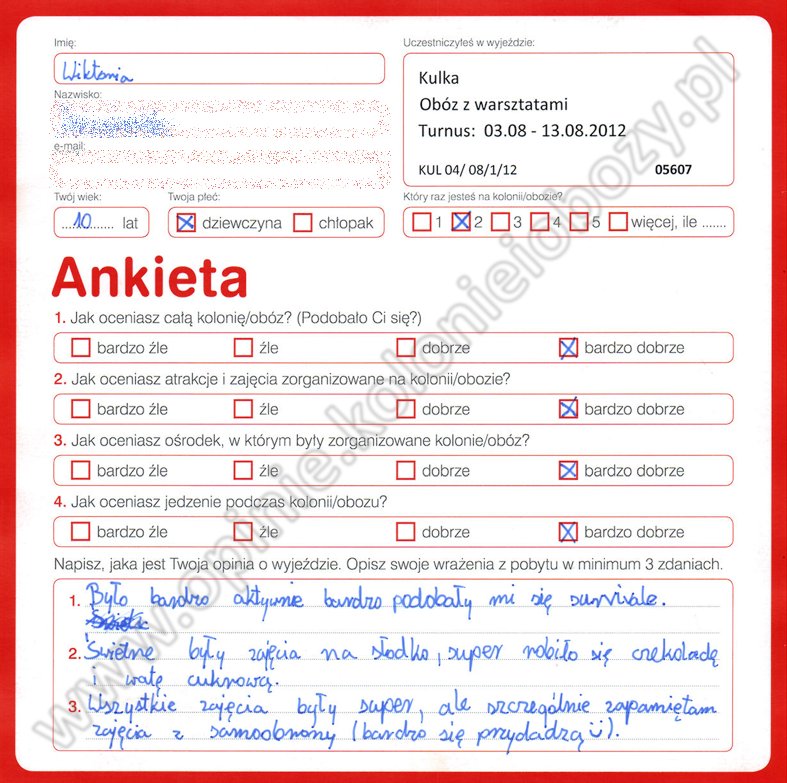 Imię:
Wiktoria
Nazwisko:
e-mail:
Uczestniczyłeś w wyjeździe:
Kulka
Obóz z warsztatami
Turnus: 03.08 - 13.08.2012
KUL 04/ 08/1/12 05607
Twój wiek:
....10....... lat
Twoja płeć:
dziewczyna chłopak
Który raz jesteś na kolonii/obozie?
1 2 3 4 5 więcej, ile .......
Ankieta
1. Jak oceniasz całą kolonię/obóz? (Podobało Ci się?)
bardzo źle źle dobrze bardzo dobrze
2. Jak oceniasz atrakcje i zajęcia zorganizowane na kolonii/obozie?
bardzo źle źle dobrze bardzo dobrze
3. Jak oceniasz ośrodek, w którym były zorganizowane kolonie/obóz?
bardzo źle źle dobrze bardzo dobrze
4. Jak oceniasz jedzenie podczas kolonii/obozu?
bardzo źle źle dobrze bardzo dobrze
Napisz, jaka jest Twoja opinia o wyjeździe. Opisz swoje wrażenia z pobytu w minimum 3 zdaniach.
1. Było bardzo aktywnie bardzo podobały mi się survivale.
2. Świetne były zajęcia na słodko, super robiło się czekoladę
i watę cukrową.
3. Wszystkie zajęcia były super, ale szczególnie zapamiętam
zajęcia z samoobrony (bardzo się przydadzą☺).
www.opinie.kolonieiobozy.pl